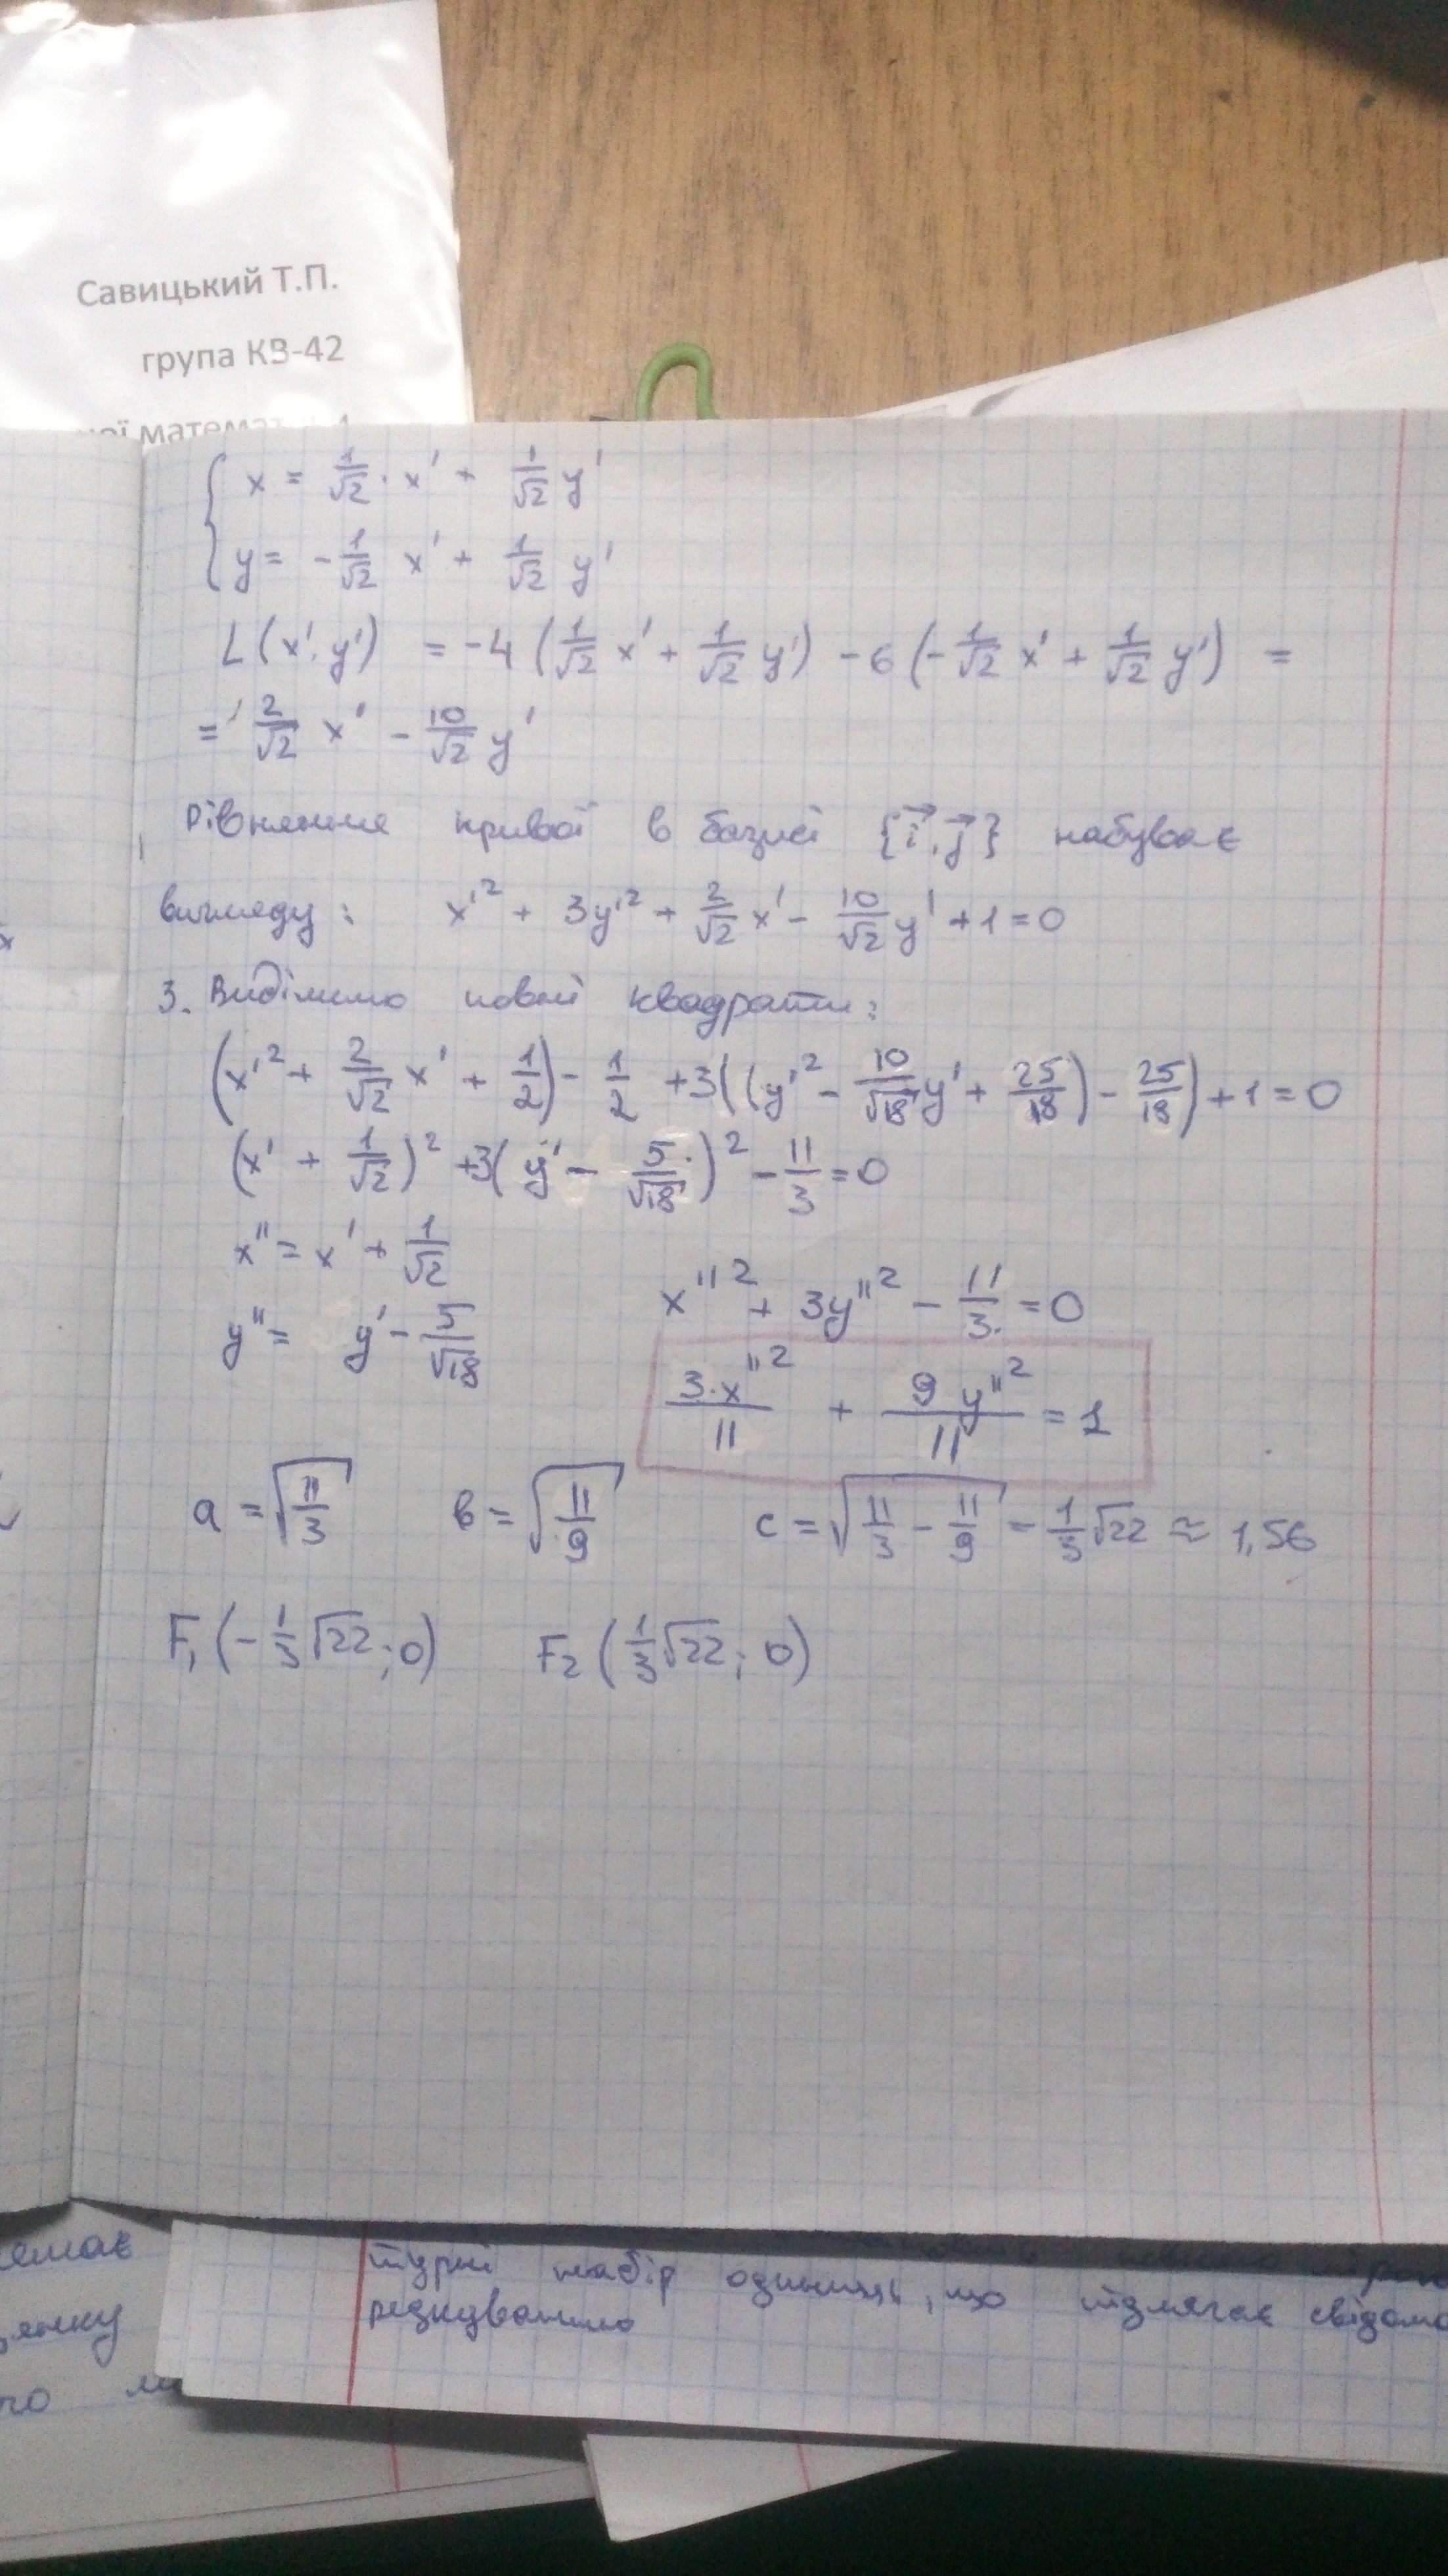 Савицький Т.П.
група КВ-42
ної математики
{ x = 1/√2 · x' + 1/√2 y'
y = -1/√2 x' + 1/√2 y'
L(x', y') = -4 (1/√2 x' + 1/√2 y') - 6 (-1/√2 x' + 1/√2 y') =
= 2/√2 x' - 10/√2 y'
Рівняння кривої в базисі {i⃗, j⃗} набуває
вигляду: x'² + 3y'² + 2/√2 x' - 10/√2 y' + 1 = 0
3. Виділимо повні квадрати:
(x'² + 2/√2 x' + 1/2) - 1/2 + 3((y'² - 10/√18 y' + 25/18) - 25/18) + 1 = 0
(x' + 1/√2)² + 3(y' - 5/√18)² - 11/3 = 0
x'' = x' + 1/√2
y'' = y' - 5/√18
x''² + 3y''² - 11/3 = 0
3·x''²/11 + 9 y''²/11 = 1
a = √(11/3) в = √(11/9) c = √(11/3 - 11/9) = 1/3 √22 ≈ 1,56
F₁ (-1/3 √22; 0) F₂ (1/3 √22; 0)
турні набір одиниць, що підлягає свідомо
редагуванню